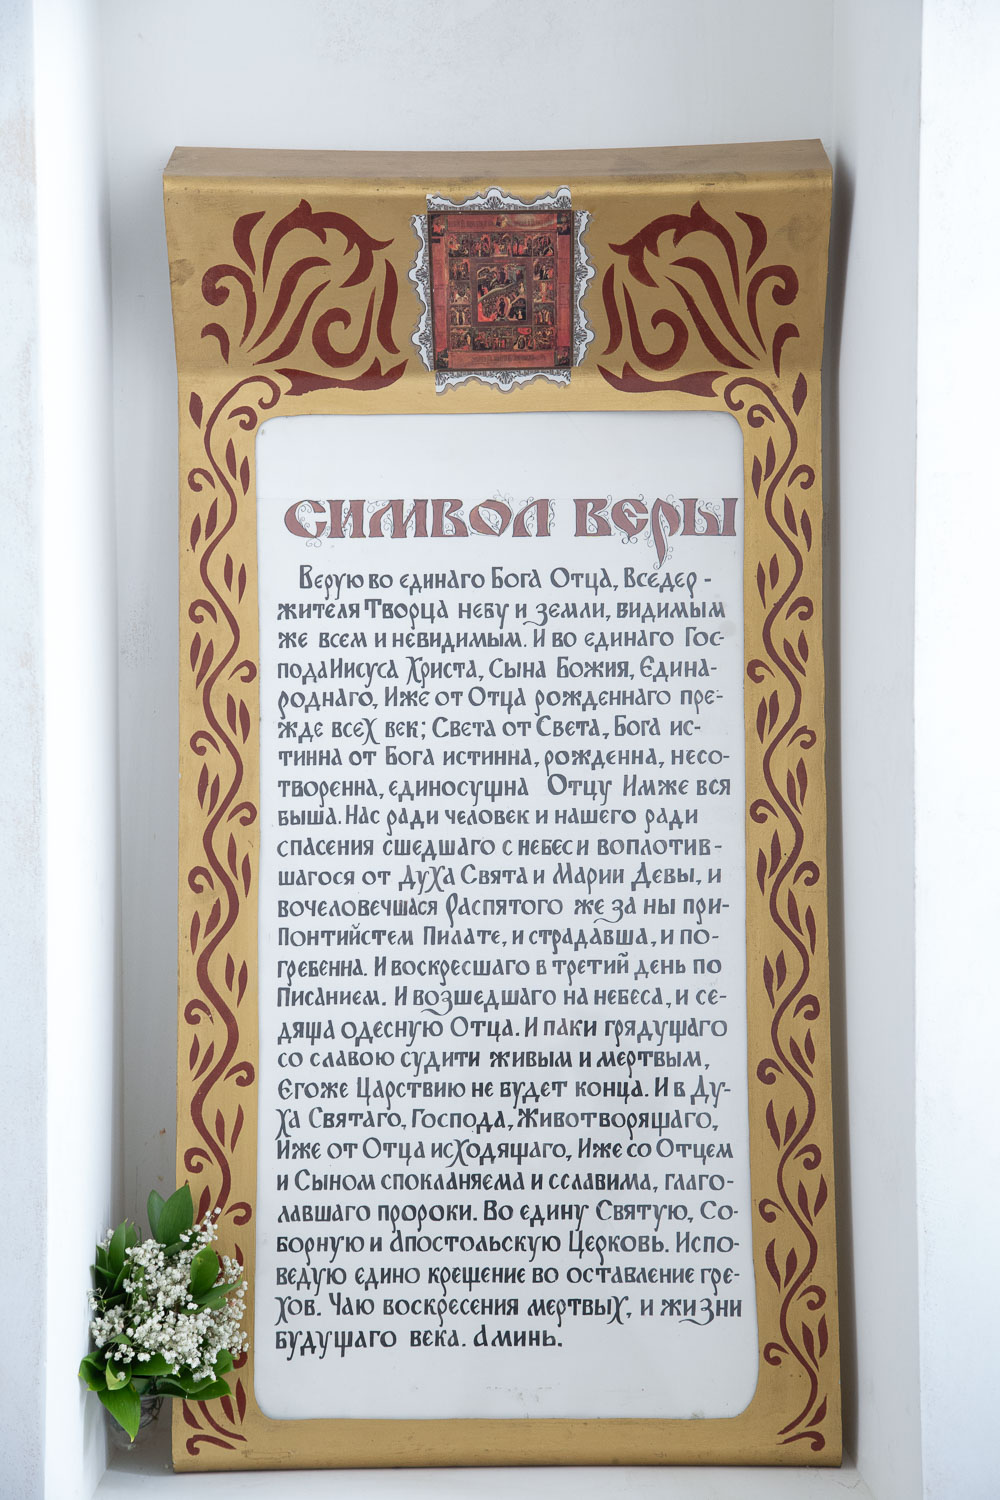 СИМВОЛ ВЕРЫ
Верую во единаго Бога Отца, Вседер-
жителя Творца небу и земли, видимым
же всем и невидимым. И во единаго Гос-
пода Иисуса Христа, Сына Божия, Едина-
роднаго, Иже от Отца рожденнаго пре-
жде всех век; Света от Света, Бога ис-
тинна от Бога истинна, рожденна, несо-
творенна, единосущна Отцу Имже вся
быша. Нас ради человек и нашего ради
спасения сшедшаго с небес и воплотив-
шагося от Духа Свята и Марии Девы, и
вочеловечшася Распятого же за ны при-
Понтийстем Пилате, и страдавша, и по-
гребенна. И воскресшаго в третий день по
Писанием. И возшедшаго на небеса, и се-
дяща одесную Отца. И паки грядущаго
со славою судити живым и мертвым,
Егоже Царствию не будет конца. И в Ду-
ха Святаго, Господа, Животворящаго,
Иже от Отца исходящаго, Иже со Отцем
и Сыном спокланяема и сславима, глаго-
лавшаго пророки. Во едину Святую, Со-
борную и Апостольскую Церковь. Испо-
ведую едино крещение во оставление гре-
хов. Чаю воскресения мертвых, и жизни
будущаго века. Аминь.